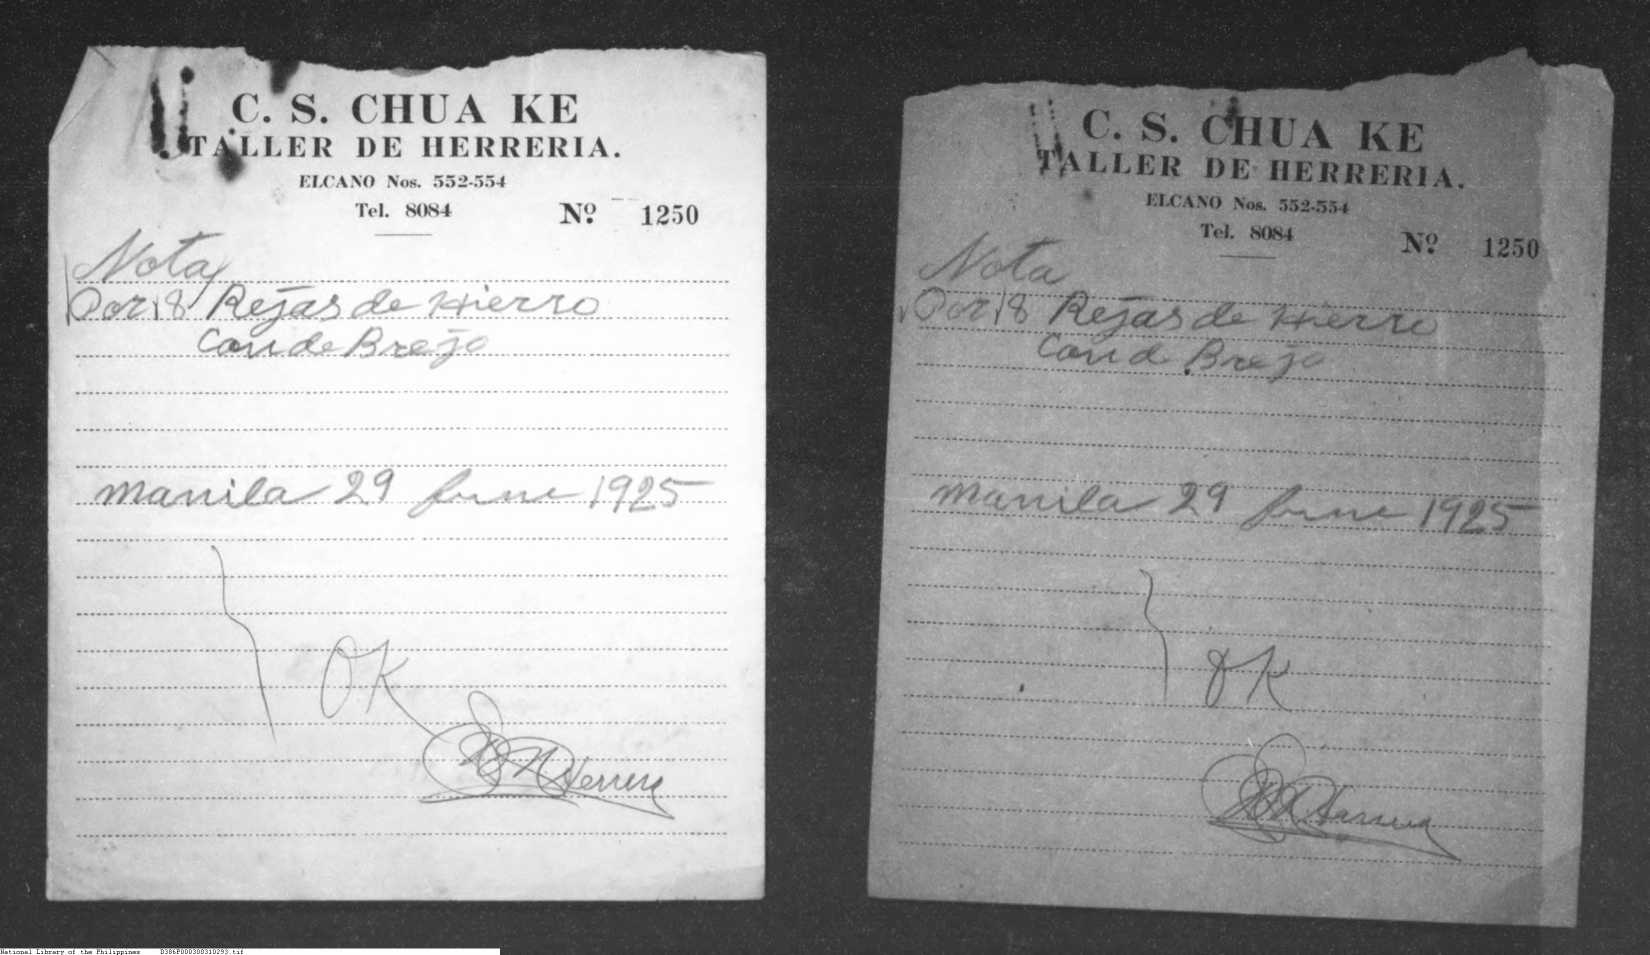 C. S. CHUA KE
TALLER DE HERRERIA.
ELCANO Nos. 552-554
Tel. 8084
Nº 1250
Nota
Por 18 Rejas de Hierro
Conde Brejo
Manila 29 June 1925
OK
C. S. CHUA KE
TALLER DE HERRERIA.
ELCANO Nos. 552-554
Tel. 8084
Nº 1250
Nota
Por 18 Rejas de Hierro
Manila 29 June 1925
OK
National Library of the Philippines D386P000300310293.tif